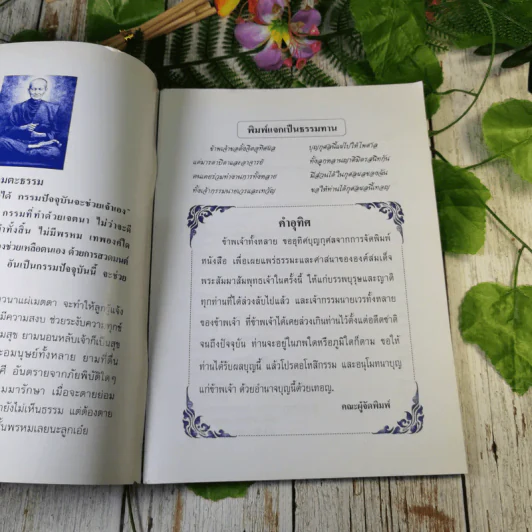 มตะธรรม
ได้ กรรมปัจจุบันจะช่วยเจ้าเอง"
กรรมที่ทำด้วยเจตนา ไม่ว่าจะดี
ทั้งสิ้น ไม่มีพรหม เทพองค์ใด
ช่วยเหลือตนเอง ด้วยการสวดมนต์
อันเป็นกรรมปัจจุบันนี้ จะช่วย
วนาแผ่เมตตา จะทำให้ลูก
มีความสงบ ช่วยระงับความทุกข์
สุข ยามนอนหลับเจ้าก็เป็นสุข
อมนุษย์ทั้งหลาย ยามที่ตื่น
อันตรายจากภัยพิบัติใดๆ
มารักษา เมื่อจะตายย่อม
ยังไม่เห็นธรรม แต่ต้องตาย
นพรหมเลยนะลูกเอ๋ย
พิมพ์แจกเป็นธรรมทาน
ข้าพเจ้าขอตั้งจิตอุทิศผล บุญกุศลนี้แผ่ไปให้ไพศาล
แด่มารดาบิดาและอาจารย์ ทั้งลูกหลานญาติมิตรสนิทกัน
คนเคยร่วมทำงานการทั้งหลาย มีส่วนได้ในกุศลผลของฉัน
ทั้งเจ้ากรรมนายเวรและเทวัญ ขอให้ท่านได้กุศลผลนี้เทอญ
คำอุทิศ
ข้าพเจ้าทั้งหลาย ขออุทิศบุญกุศลจากการจัดพิมพ์
หนังสือ เพื่อเผยแพร่ธรรมและศาสนาขององค์สมเด็จ
พระสัมมาสัมพุทธเจ้าในครั้งนี้ ให้แก่บรรพบุรุษและญาติ
ทุกท่านที่ได้ล่วงลับไปแล้ว และเจ้ากรรมนายเวรทั้งหลาย
ของข้าพเจ้า ที่ข้าพเจ้าได้เคยล่วงเกินท่านไว้ตั้งแต่อดีตชาติ
จนถึงปัจจุบัน ท่านจะอยู่ในภพใดหรือภูมิใดก็ตาม ขอให้
ท่านได้รับผลบุญนี้ แล้วโปรดอโหสิกรรม และอนุโมทนาบุญ
แก่ข้าพเจ้า ด้วยอำนาจบุญนี้ด้วยเทอญ.
คณะผู้จัดพิมพ์